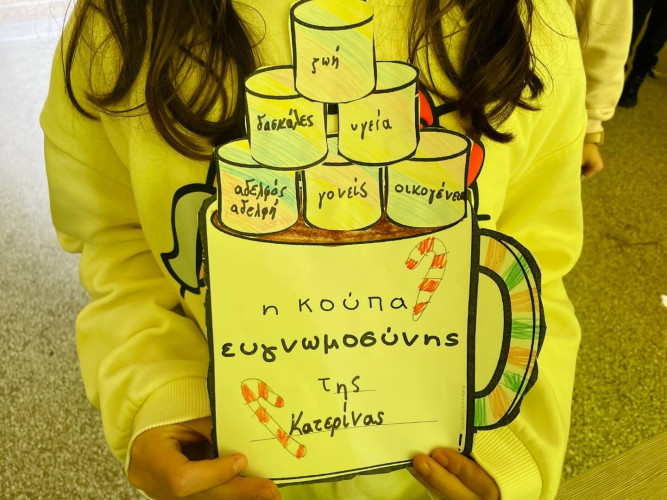 ζωή
δασκάλες
υγεία
αδελφός
αδελφή
γονείς
οικογένεια
η κούπα
ευγνωμοσύνης
της
Κατερίνας